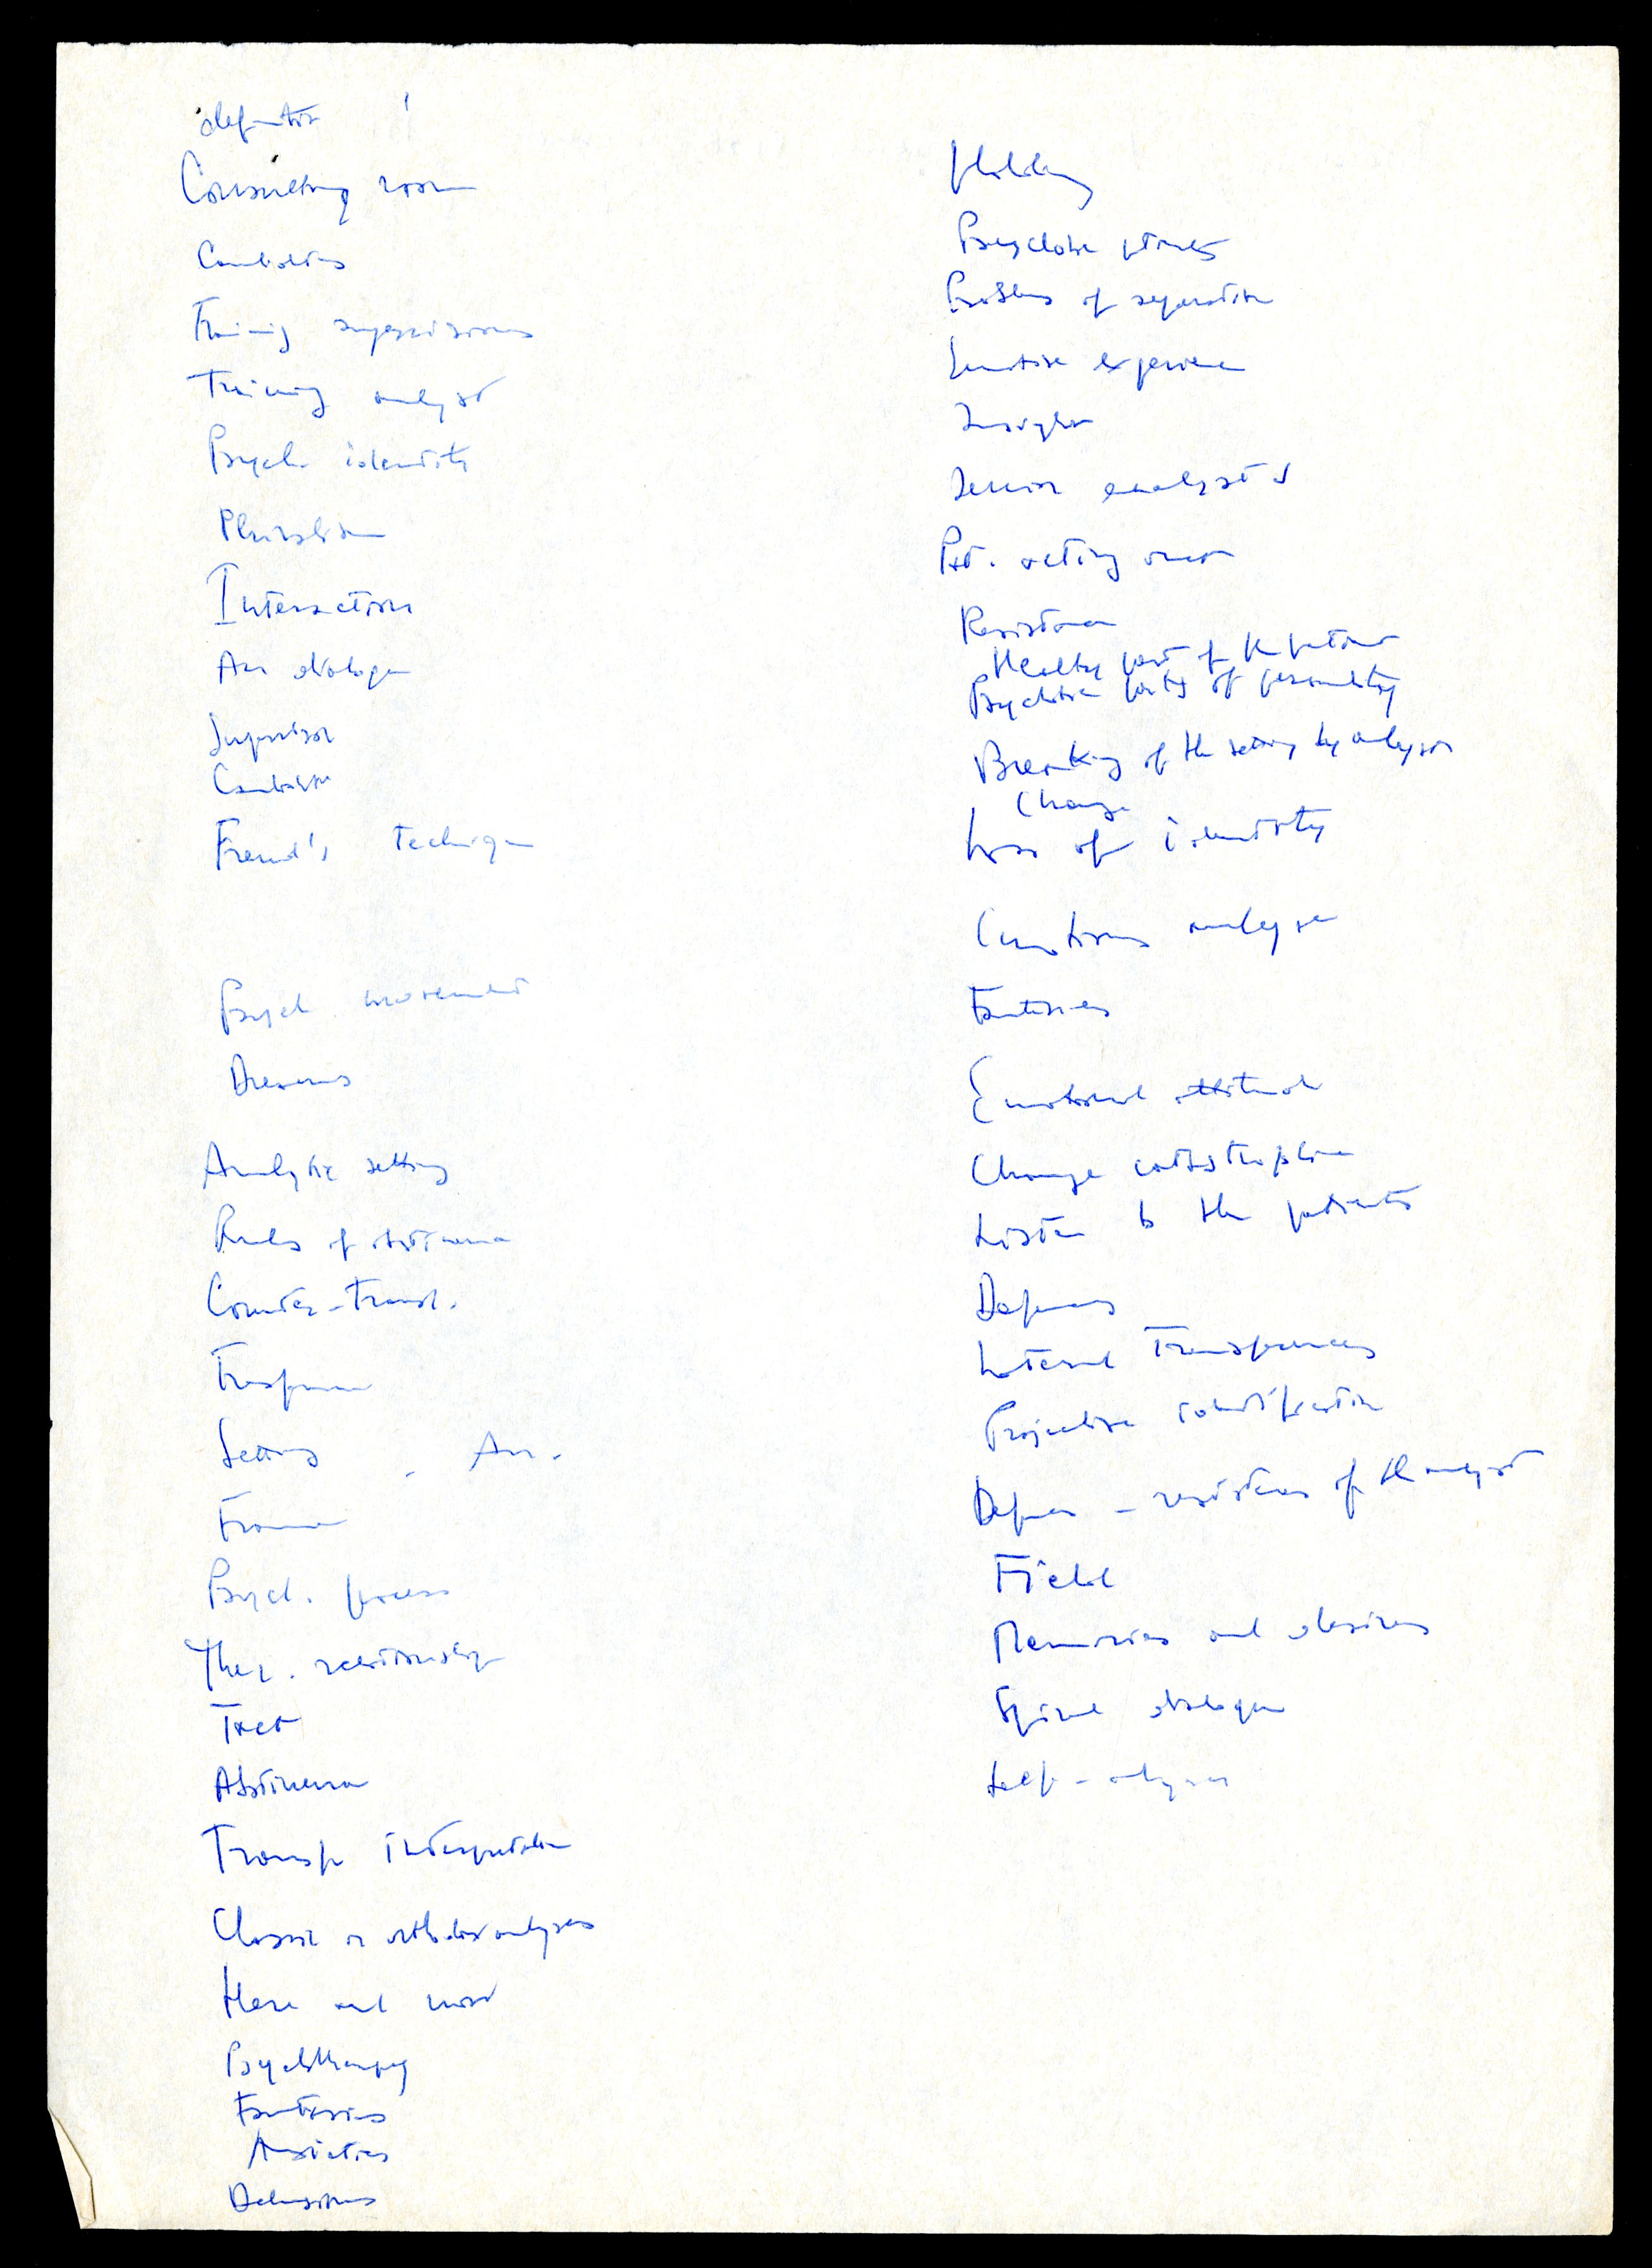 definition
Consulting room
Candidates
Training supervisions
Training analyst
Psych. identity
Pluralism
Interaction
An dialogue
Supervisor
Candidate
Freud's technique
Psych movement
Dreams
Analytic setting
Rules of abstinence
Counter-transf.
Transference
Setting - An.
Frame
Psych. process
Ther. relationship
Tact
Abstinence
Transf interpretation
Classic or orthodox analyses
Here and now
Psychotherapy
Fantasies
Anxieties
Delusions
Holding
Psychotic
Problems of separation
experience
Insight
Senior analysts
Pat. acting out
Resistance
Healthy part of the patient
Psychotic parts of personality
Breaking of the setting by analyst
Change
Loss of identity
analyse
Fantasies
Emotional attitude
Change catastrophic
Listen to the patients
Defenses
Lateral Transferences
Projective identification
Defenses - resistances of the analyst
Field
Memories and desires
Spiral dialogue
Self-analysis